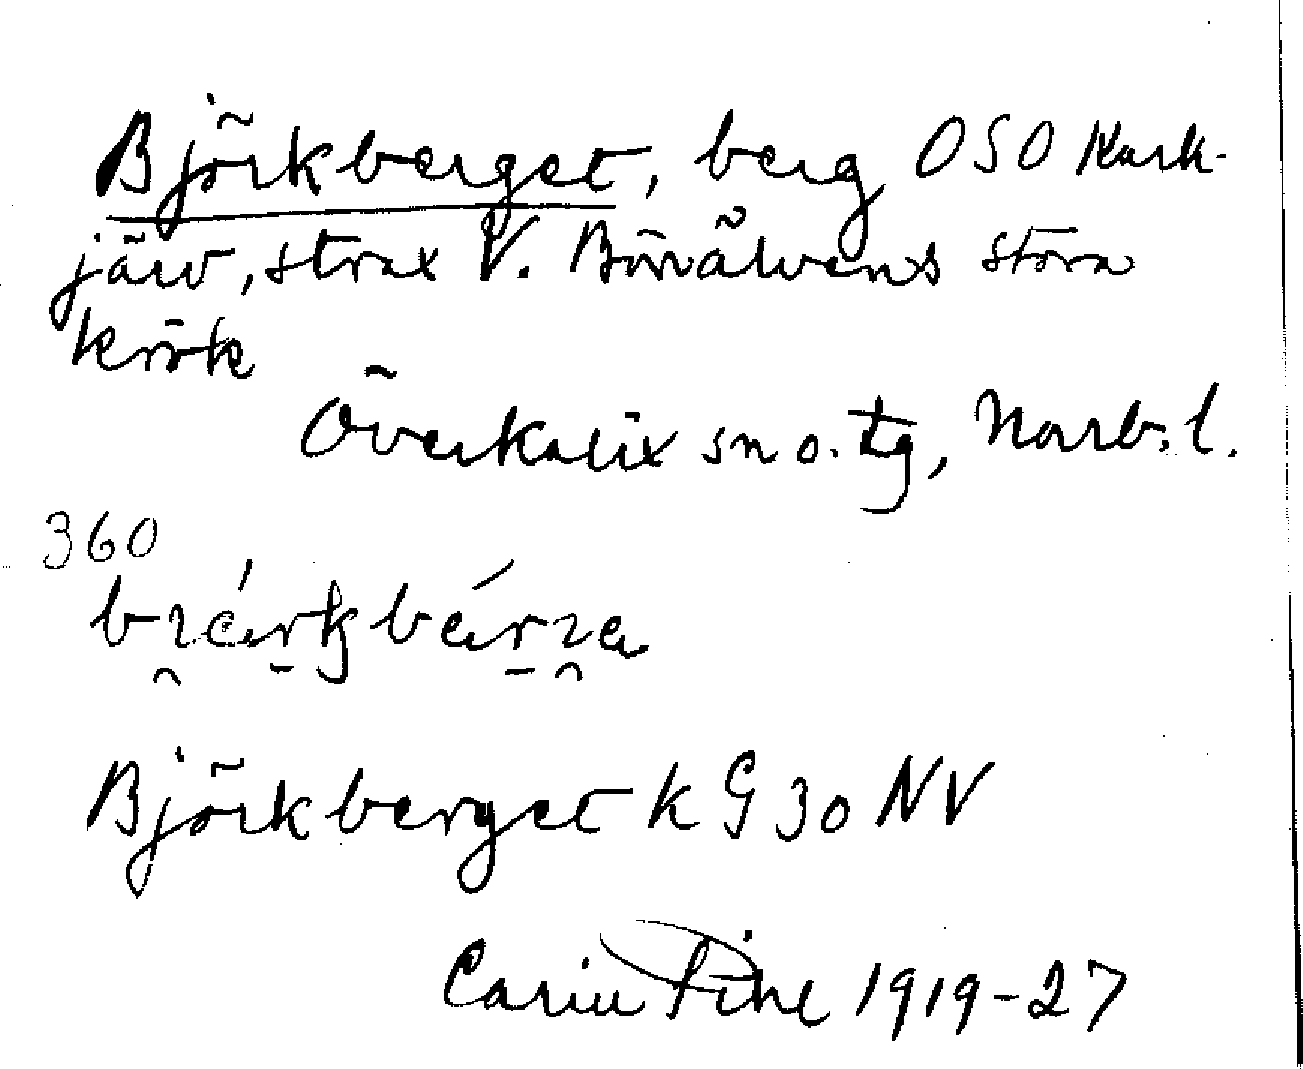 Björkberget, berg OSO Kark-
järv, strax V. Börälvens stora
krök
Överkalix sn o. tg, Norrb. l.
360
Björkberget k G 30 NV
Carin Pihl 1919-27